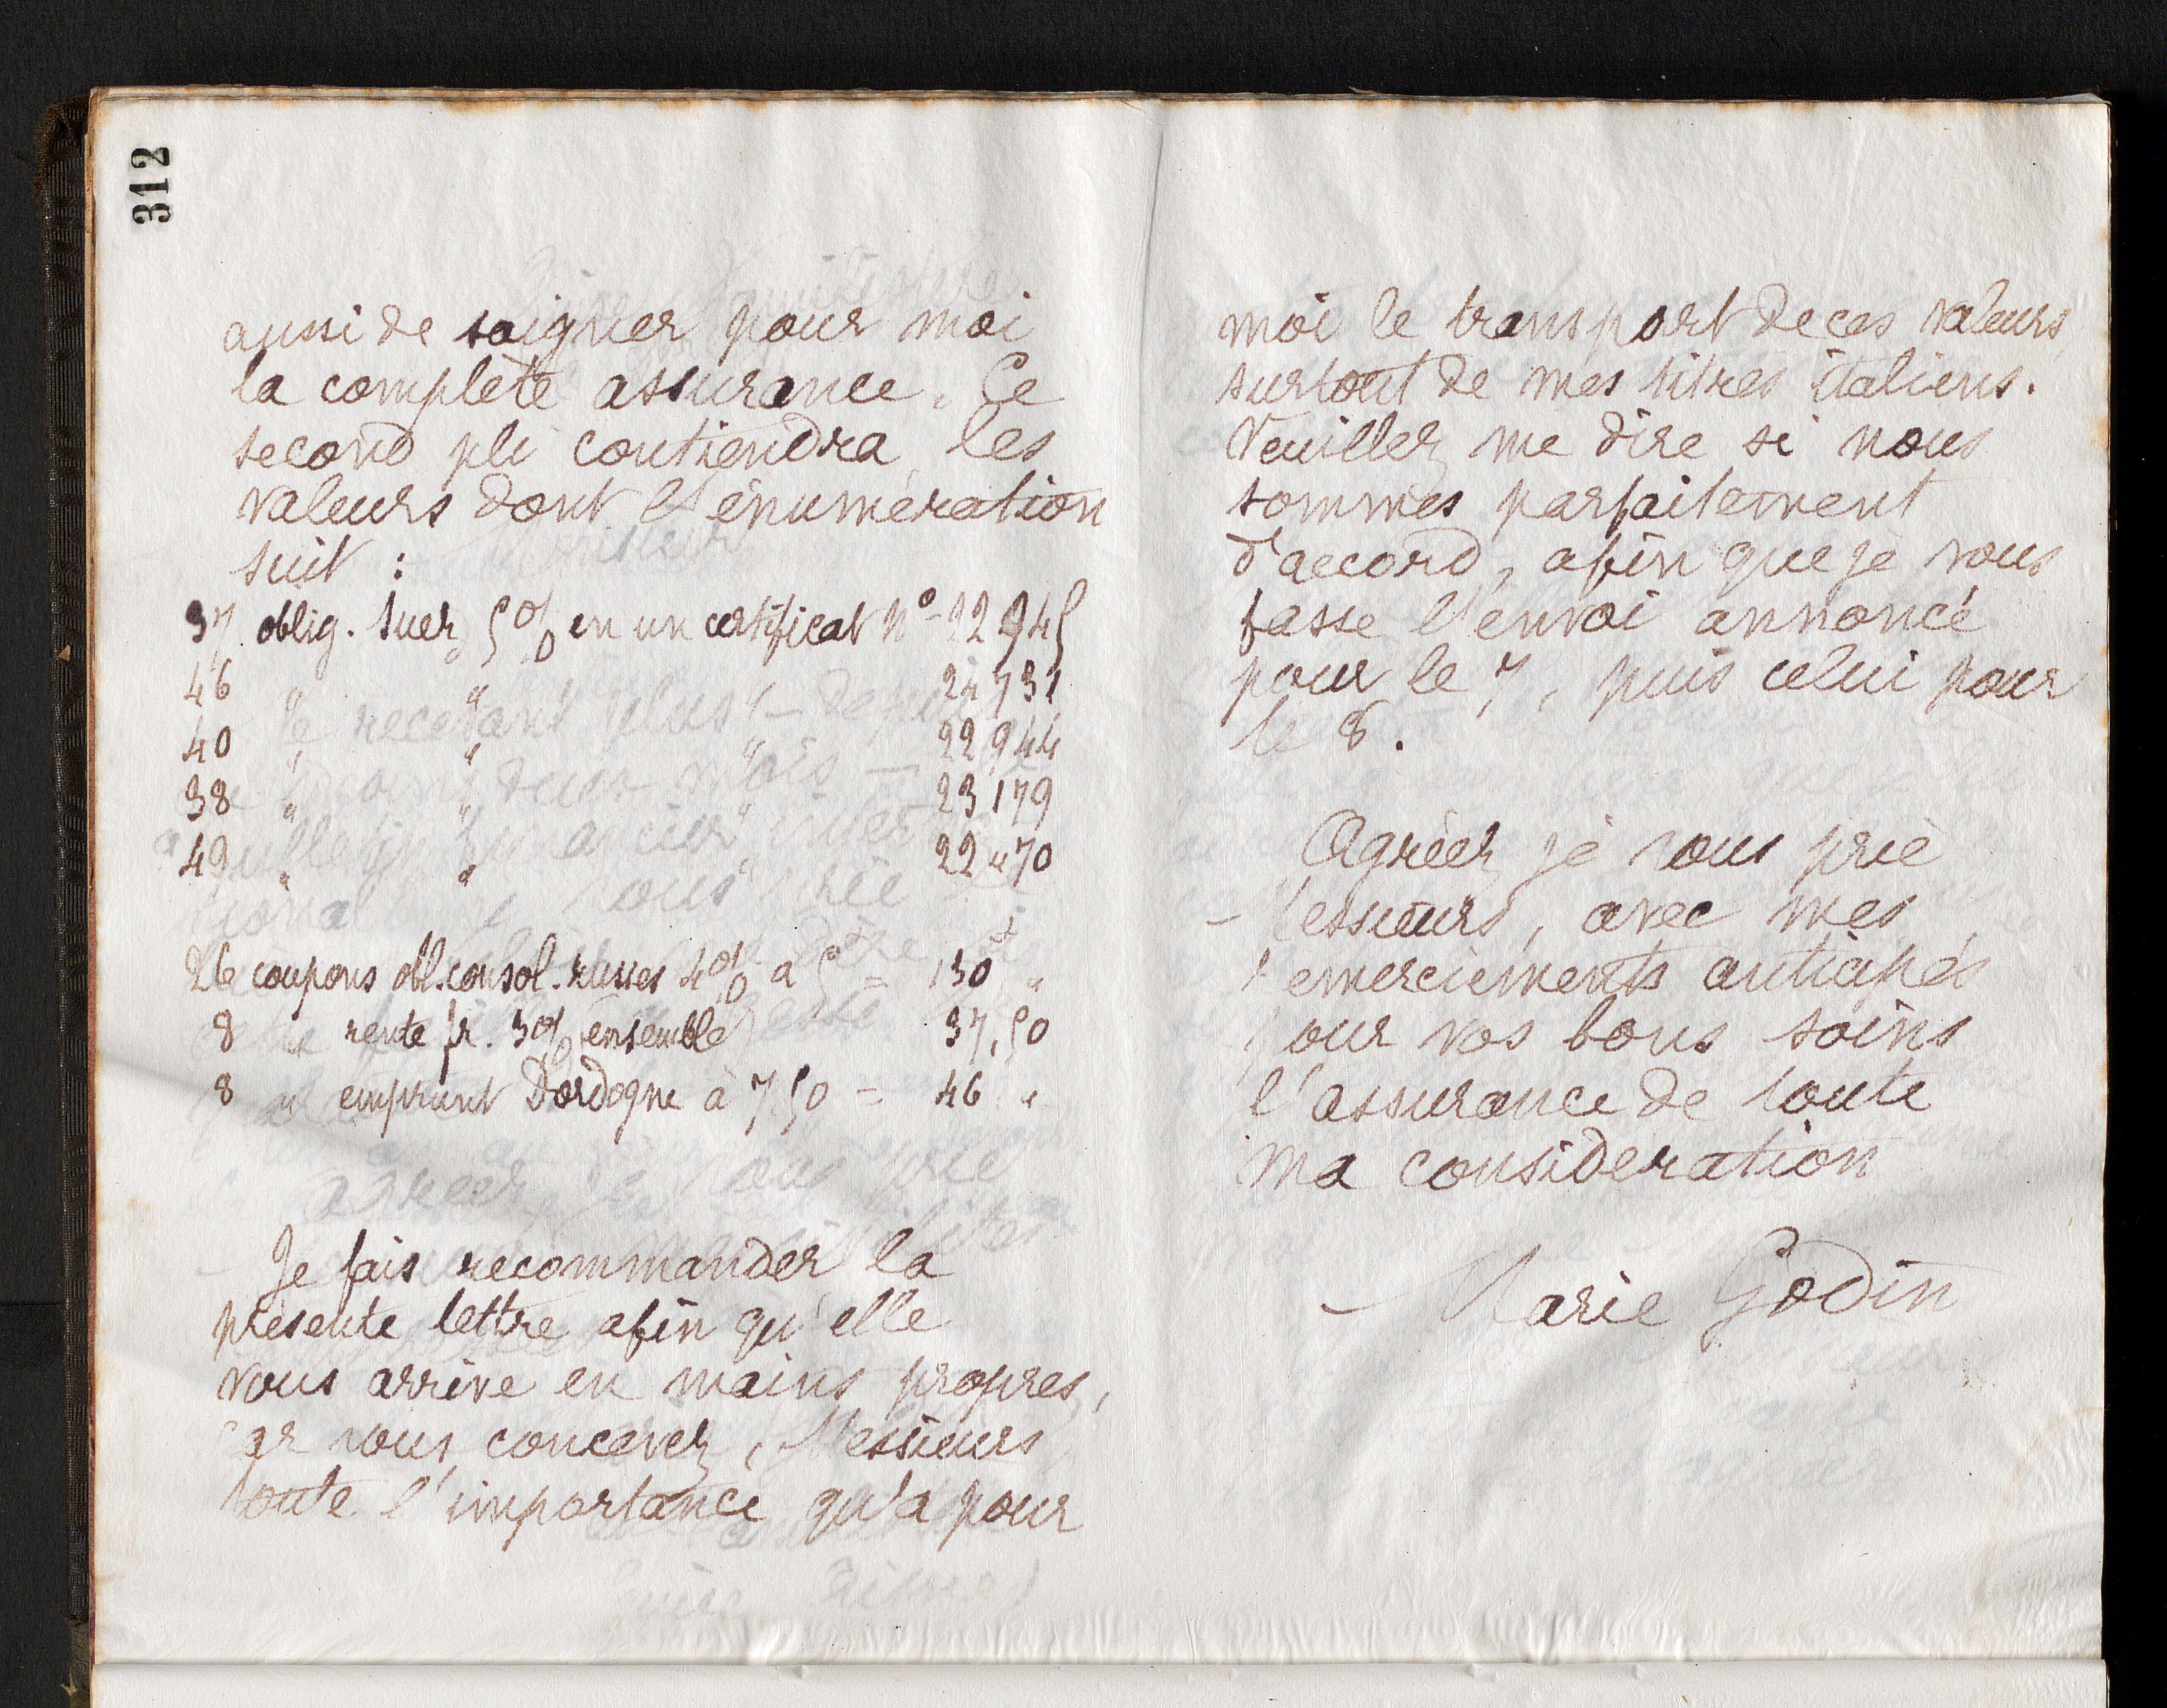 312
aussi de soigner pour moi
la complète assurance. Ce
second pli contiendra les
valeurs dont l'énumération
suit :
37 oblig. Suez 5% en un certificat N° 22 945
46 " " 24 731
40 " " " 22 944
38 " " " 23 179
49 " " " 22 470
f
26 coupons obl. consol. russes 4% à 5 = 130 "
8 rente fr. 3% ensemble 37,50
8 " emprunt Dordogne à 7,50 = 46 "
Je fais recommander la
présente lettre afin qu'elle
vous arrive en mains propres,
car vous concevez, Messieurs
toute l'importance qu'a pour
moi le transport de ces valeurs,
surtout de mes titres italiens.
Veuillez me dire si nous
sommes parfaitement
d'accord, afin que je vous
fasse l'envoi annoncé
pour le 7, puis celui pour
le 8.
Agréez je vous prie
Messieurs, avec mes
remerciements anticipés
pour vos bons soins
l'assurance de toute
ma considération
Marie Godin